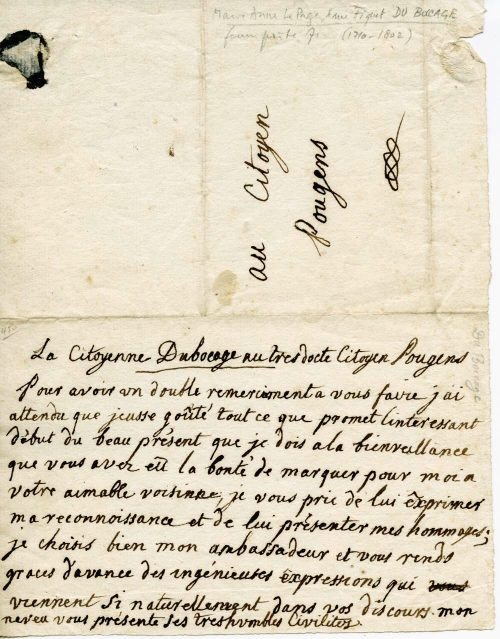 Marie Anne Le Page, dame Fiquet DU BOCAGE
femme poète (1710-1802)
au Citoyen
Pougens
La Citoyenne Dubocage au tres docte Citoyen Pougens
Pour avoir un double remerciment a vous faire j'ai
attendu que jeusse goûté tout ce que promet linteressant
début du beau présent que je dois a la bienveillance
que vous avez eü la bonté de marquer pour moi a
votre aimable voisinne, je vous prie de lui exprimer
ma reconnoissance et de lui présenter mes hommages;
je choisis bien mon ambassadeur et vous rends
graces d'avance des ingénieuses expressions qui vous
viennent si naturellement dans vos discours. mon
neveu vous présente ses tres humbles Civilités
Du Bocage